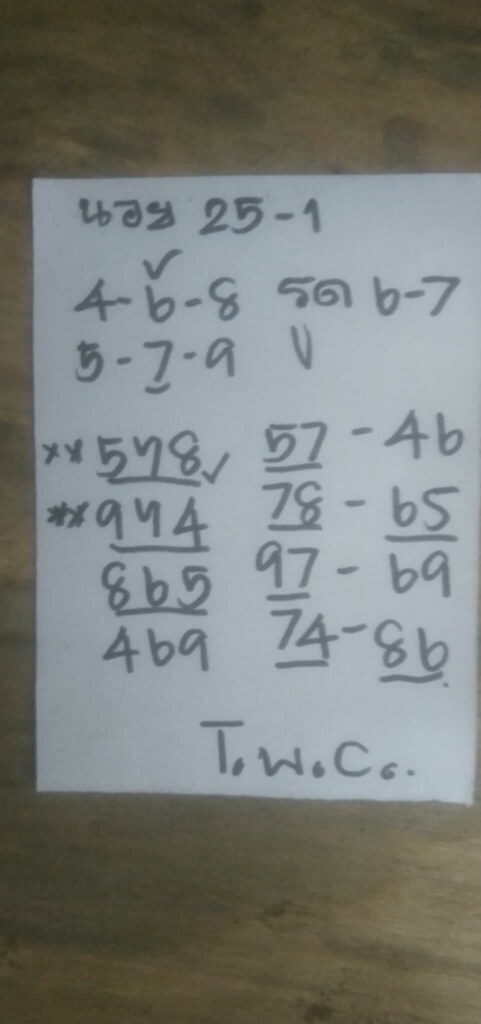 นอย 25-1
4-6-8 รด 6-7
5-7-9
**578 57-46
**974 78-65
865 97-69
469 74-86.
T.W.C..